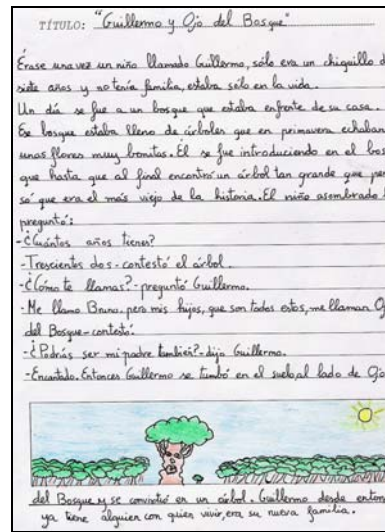 TÍTULO: "Guillermo y Ojo del Bosque"
Érase una vez un niño llamado Guillermo, sólo era un chiquillo d
siete años y no tenía familia, estaba sólo en la vida.
Un día se fue a un bosque que estaba enfrente de su casa.
Ese bosque estaba lleno de árboles que en primavera echaban
unas flores muy bonitas. Él se fue introduciendo en el bos
que hasta que al final encontró un árbol tan grande que pen
só que era el más viejo de la historia. El niño asombrado l
preguntó:
-¿Cuántos años tienes?
-Trescientos dos-contestó el árbol.
-¿Cómo te llamas?-preguntó Guillermo.
-Me llamo Bruno, pero mis hijos, que son todos estos, me llaman Oj
del Bosque-contestó.
-¿Podrías ser mi padre también?-dijo Guillermo.
-Encantado. Entonces Guillermo se tumbó en el suelo, al lado de Ojo
del Bosque y se convirtió en un árbol. Guillermo desde enton
ya tiene álguien con quien vivir, era su nueva familia.